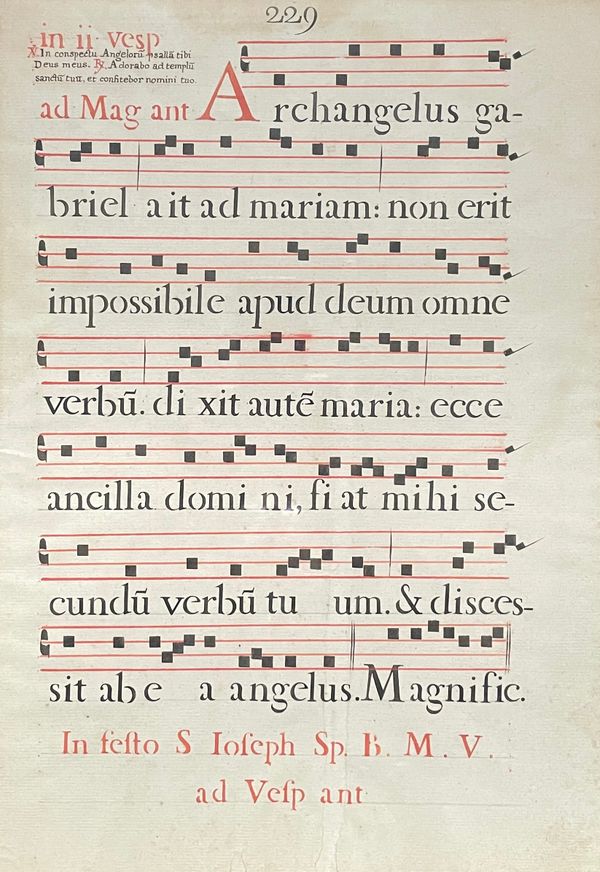 229
in ii. vesp
℣. In conspectu Angelorū psallā tibi
Deus meus. ℟. Adorabo ad templū
sanctū tuū, et confitebor nomini tuo.
ad Mag ant Archangelus ga-
briel ait ad mariam: non erit
impossibile apud deum omne
verbū. di xit autē maria: ecce
ancilla domi ni, fi at mihi se-
cundū verbū tu um. & disces-
sit ab e a angelus. Magnific.
In feſto S Ioſeph Sp. B. M. V.
ad Veſp ant